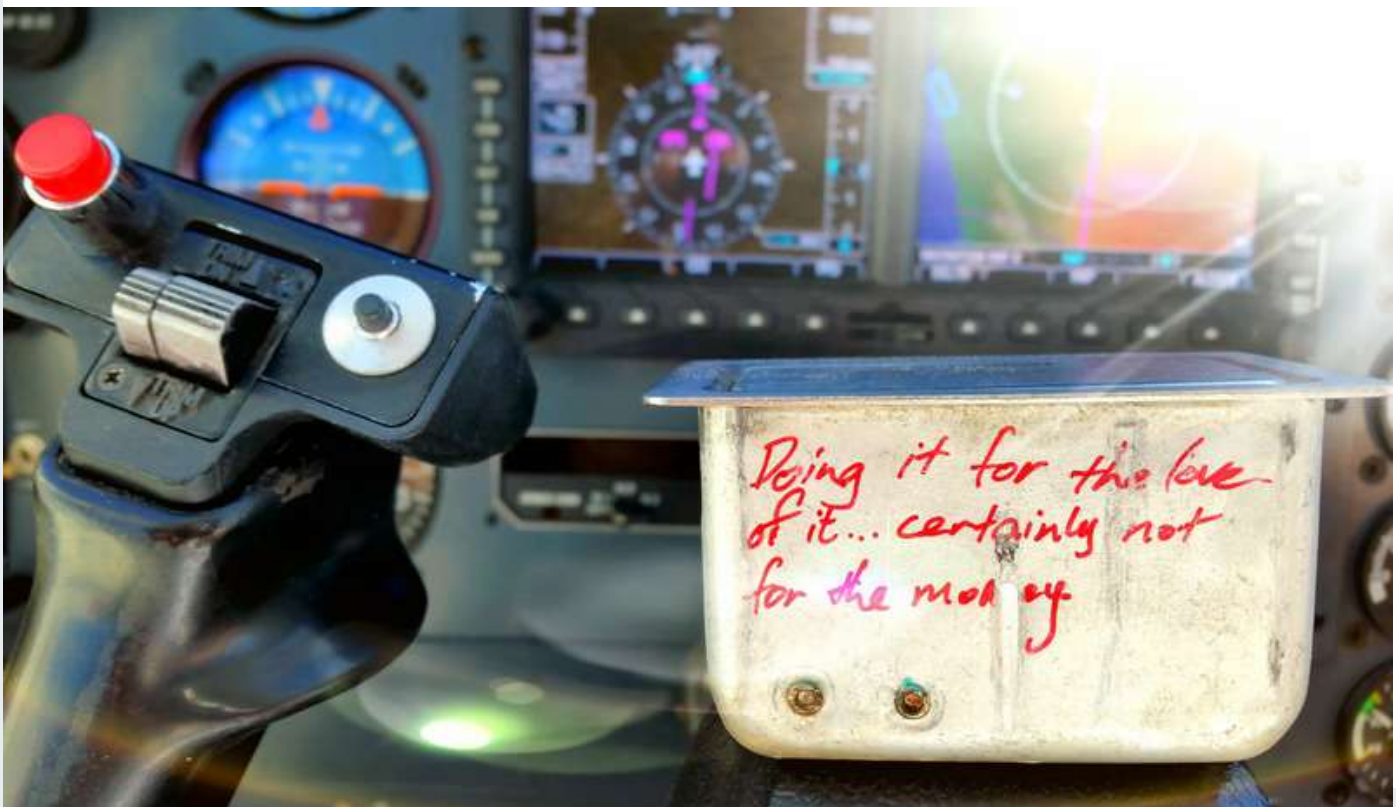 Doing it for the love
of it... certainly not
for the money